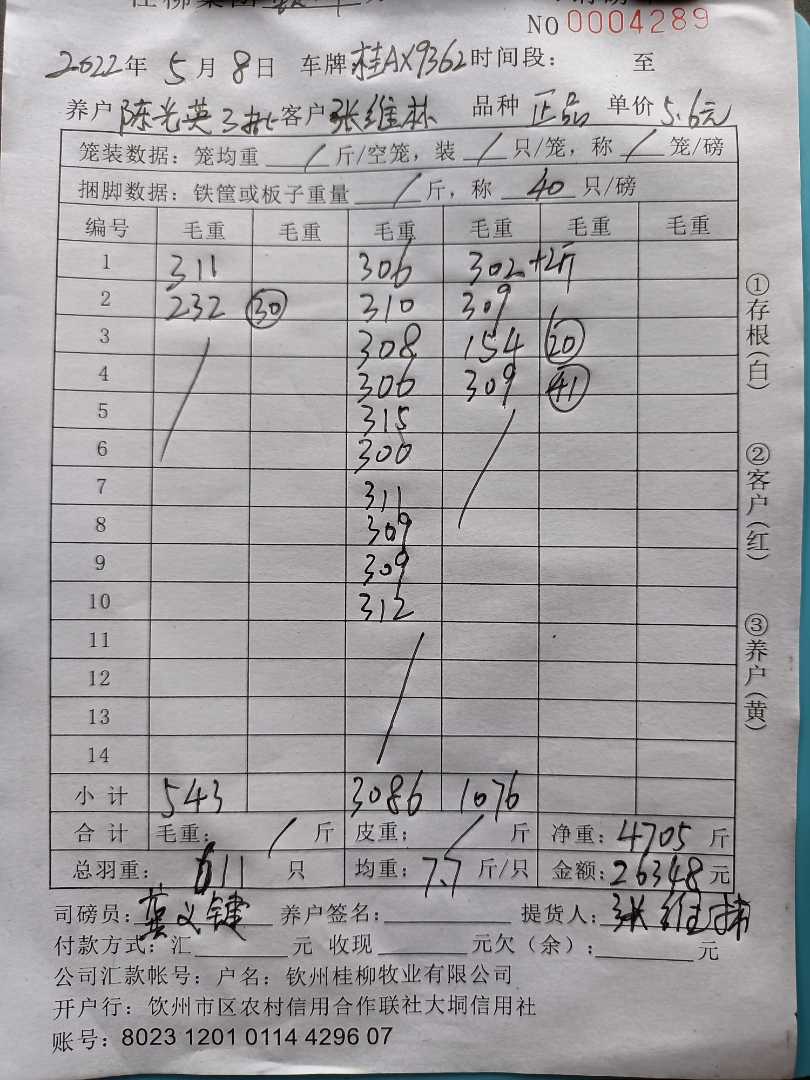 NO 0004289
2022年 5月 8日 车牌 桂AX9362 时间段: 至
养户 陈光英3批 客户 张维林 品种 正品 单价 5.6元
笼装数据: 笼均重 / 斤/空笼, 装 / 只/笼, 称 / 笼/磅
捆脚数据: 铁筐或板子重量 / 斤, 称 40 只/磅
编号 毛重 毛重 毛重 毛重 毛重 毛重
1 311 306 302+2斤
2 232 30 310 309
3 308 154 20
4 306 309 41
5 315
6 300
7 311
8 309
9 309
10 312
11
12
13
14
小计 543 3086 1076
合计 毛重: / 斤 皮重: / 斤 净重: 4705 斤
总羽重: 611 只 均重: 7.7 斤/只 金额: 26348元
司磅员: 莫义键 养户签名: 提货人: 张维林
付款方式: 汇 元 收现 元欠(余): 元
公司汇款帐号: 户名: 钦州桂柳牧业有限公司
开户行: 钦州市区农村信用合作联社大垌信用社
账号: 8023 1201 0114 4296 07
①存根(白)
②客户(红)
③养户(黄)